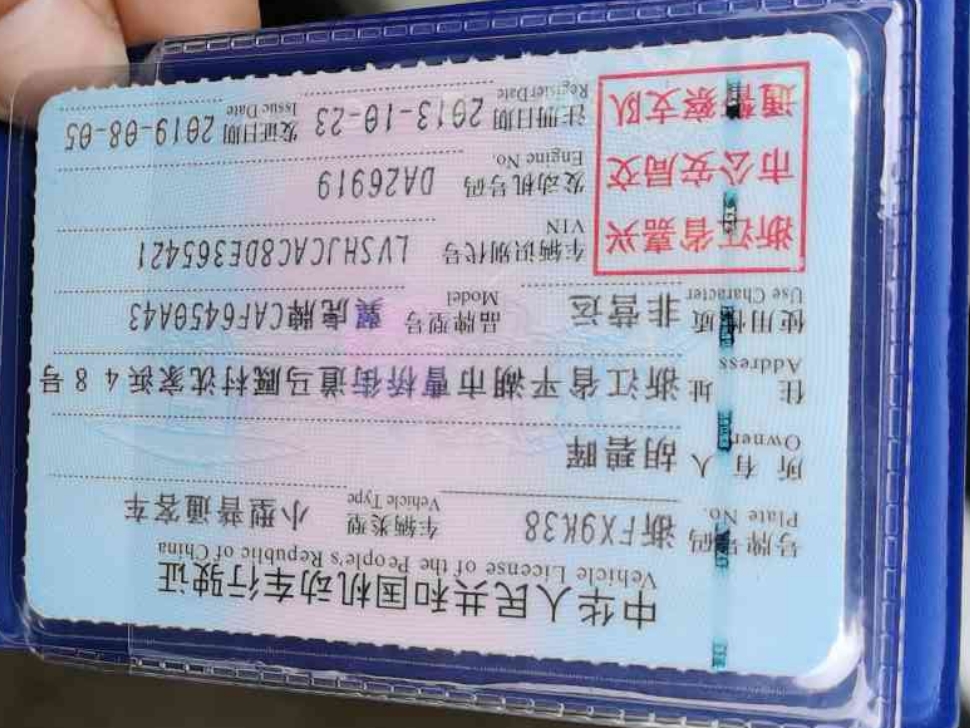 中华人民共和国机动车行驶证
Vehicle License of the People's Republic of China
号牌号码 浙FX9K38 车辆类型 小型普通客车
Plate No. Vehicle Type
所有人 胡碧晖
Owner
住址 浙江省平湖市曹桥街道马厩村沈家浜48号
Address
使用性质 非营运 品牌型号 翼虎牌CAF6450A43
Use Character Model
浙江省嘉兴
市公安局交
通警察支队
车辆识别代号 LVSHJCAC8DE365421
VIN
发动机号码 DA26919
Engine No.
注册日期 2013-10-23 发证日期 2019-08-05
Register Date Issue Date